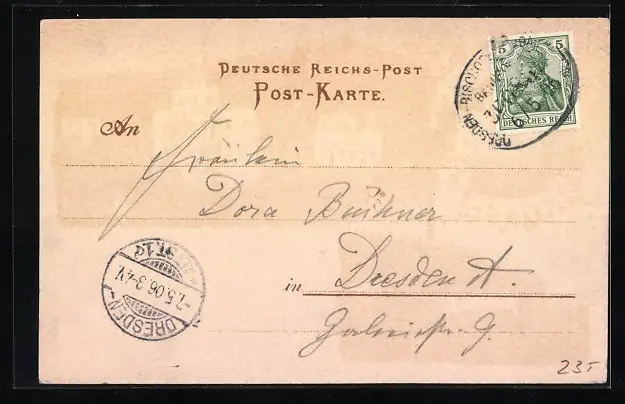 DEUTSCHE REICHS-POST
POST-KARTE.
5 5
DEUTSCHES REICH
DRESDEN-BISCHOF
6 5
An
Fräulein
Dora Büchner
in Dresden A.
7.5.06.3-4V.
DRESDEN-
23,-